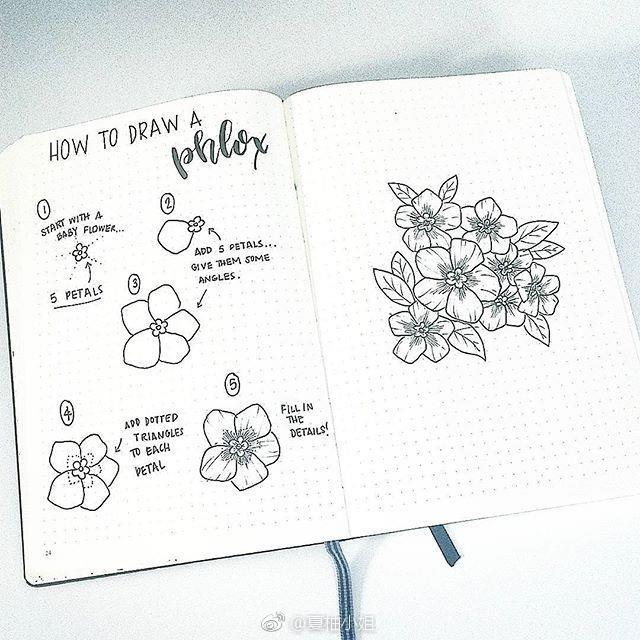 HOW TO DRAW A
phlox
1
START WITH A
BABY FLOWER...
5 PETALS
2
ADD 5 PETALS...
GIVE THEM SOME
ANGLES.
3
4
ADD DOTTED
TRIANGLES
TO EACH
PETAL
5
FILL IN
THE
DETAILS!
24
@夏柚小姐